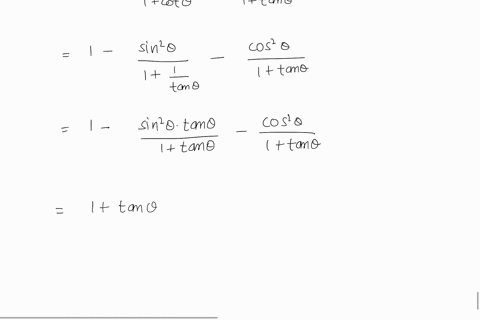 1+cotθ 1+tanθ
= 1 - sin²θ/(1 + 1/tanθ) - cos²θ/(1+tanθ)
= 1 - sin²θ·tanθ/(1+tanθ) - cos²θ/(1+tanθ)
= 1+ tanθ